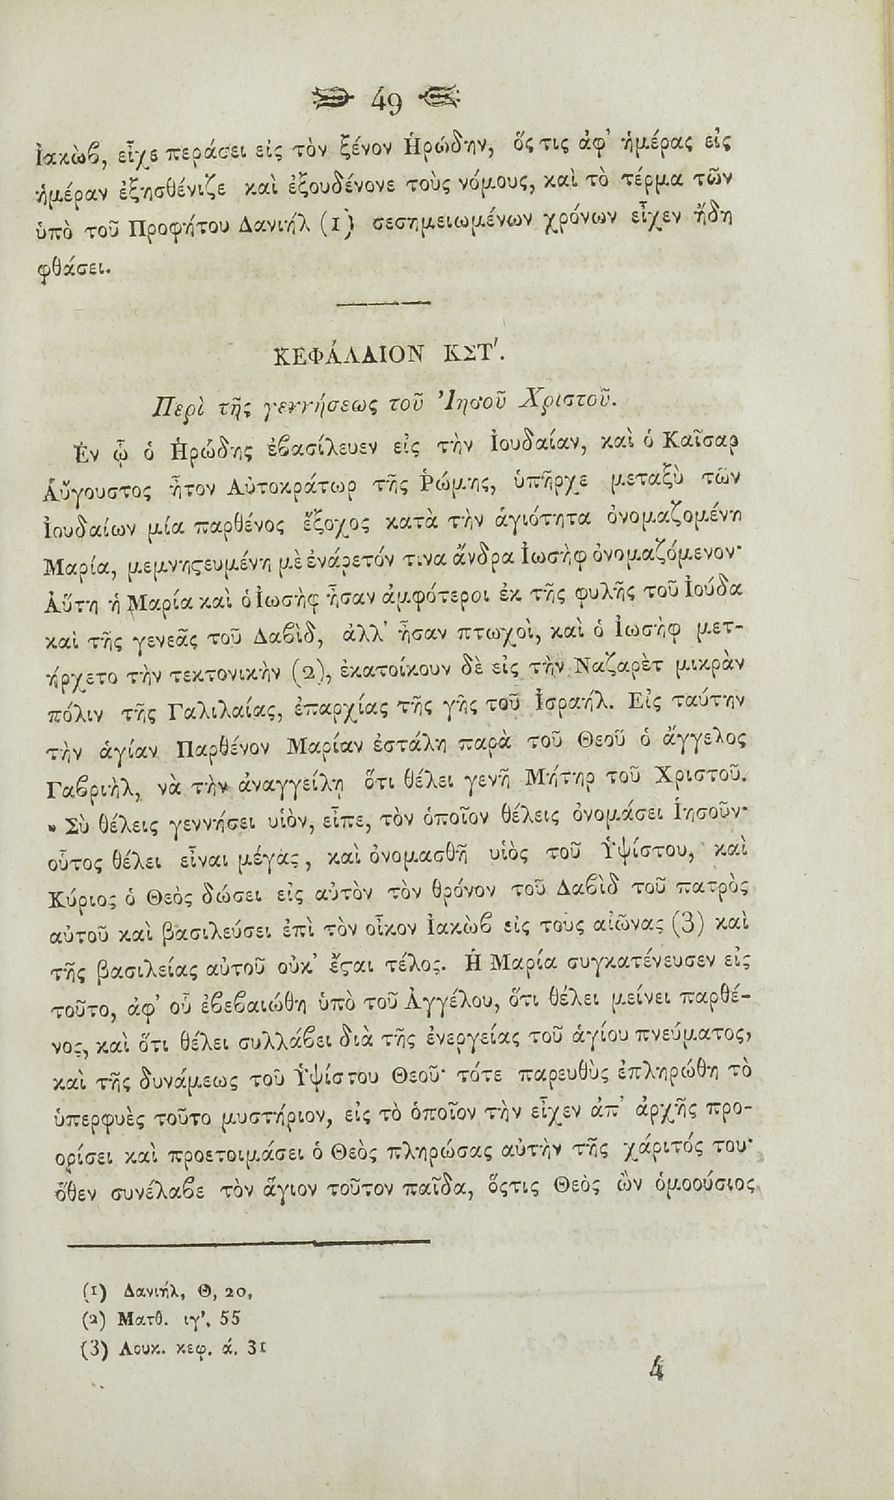 49
Ἰακὼβ, εἶχε περάσει εἰς τὸν ξένον Ἡρώδην, ὅς τις ἀφ' ἡμέρας εἰς
ἡμέραν ἐξησθένιζε καὶ ἐξουδένονε τοὺς νόμους, καὶ τὸ τέρμα τῶν
ὑπὸ τοῦ Προφήτου Δανιήλ (1) σεσημειωμένων χρόνων εἶχεν ἤδη
φθάσει.
ΚΕΦΑΛΑΙΟΝ ΚΣΤ'.
Περὶ τῆς γεννήσεως τοῦ Ἰησοῦ Χριστοῦ.
Ἐν ᾧ ὁ Ἡρώδης ἐβασίλευεν εἰς τὴν Ἰουδαίαν, καὶ ὁ Καῖσαρ
Αὔγουστος ἦτον Αὐτοκράτωρ τῆς Ῥώμης, ὑπῆρχε μεταξὺ τῶν
Ἰουδαίων μία παρθένος ἔξοχος κατὰ τὴν ἁγιότητα ὀνομαζομένη
Μαρία, μεμνηϛευμένη μὲ ἐνάρετόν τινα ἄνδρα Ἰωσὴφ ὀνομαζόμενον·
Αὕτη ἡ Μαρία καὶ ὁ Ἰωσὴφ ἦσαν ἀμφότεροι ἐκ τῆς φυλῆς τοῦ Ἰούδα
καὶ τῆς γενεᾶς τοῦ Δαβὶδ, ἀλλ' ἦσαν πτωχοὶ, καὶ ὁ Ἰωσὴφ μετ-
ήρχετο τὴν τεκτονικὴν (2), ἐκατοίκουν δὲ εἰς τὴν Ναζαρὲτ μικρὰν
πόλιν τῆς Γαλιλαίας, ἐπαρχίας τῆς γῆς τοῦ Ἰσραήλ. Εἰς ταύτην
τὴν ἁγίαν Παρθένον Μαρίαν ἐστάλη παρὰ τοῦ Θεοῦ ὁ ἄγγελος
Γαβριὴλ, νὰ τὴν ἀναγγείλῃ ὅτι θέλει γενῆ Μήτηρ τοῦ Χριστοῦ.
» Σὺ θέλεις γεννήσει υἱὸν, εἶπε, τὸν ὁποῖον θέλεις ὀνομάσει Ἰησοῦν·
οὗτος θέλει εἶναι μέγας, καὶ ὀνομασθῆ υἱὸς τοῦ Ὑψίστου, καὶ
Κύριος ὁ Θεὸς δώσει εἰς αὐτὸν τὸν θρόνον τοῦ Δαβὶδ τοῦ πατρὸς
αὐτοῦ καὶ βασιλεύσει ἐπὶ τὸν οἶκον Ἰακὼβ εἰς τοὺς αἰῶνας (3) καὶ
τῆς βασιλείας αὐτοῦ οὐκ' ἔϛαι τέλος. Ἡ Μαρία συγκατένευσεν εἰς
τοῦτο, ἀφ' οὗ ἐβεβαιώθη ὑπὸ τοῦ Ἀγγέλου, ὅτι θέλει μείνει παρθέ-
νος, καὶ ὅτι θέλει συλλάβει διὰ τῆς ἐνεργείας τοῦ ἁγίου πνεύματος,
καὶ τῆς δυνάμεως τοῦ Ὑψίστου Θεοῦ· τότε παρευθὺς ἐπληρώθη τὸ
ὑπερφυὲς τοῦτο μυστήριον, εἰς τὸ ὁποῖον τὴν εἶχεν ἀπ' ἀρχῆς προ-
ορίσει καὶ προετοιμάσει ὁ Θεὸς πληρώσας αὐτὴν τῆς χάριτός του·
ὅθεν συνέλαβε τὸν ἅγιον τοῦτον παῖδα, ὅςτις Θεὸς ὢν ὁμοούσιος
(1) Δανιήλ, Θ, 20,
(2) Ματθ. ιγ'. 55
(3) Λουκ. κεφ. ά. 31
4